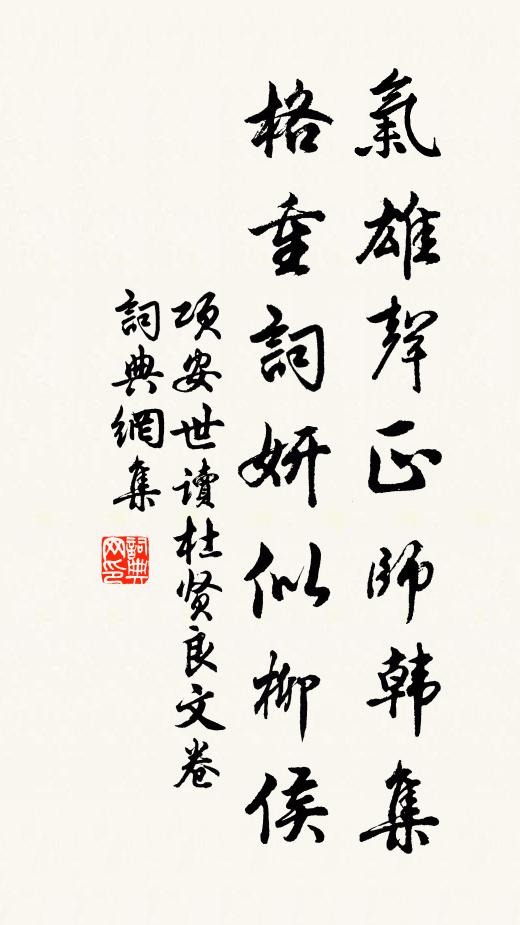 氣雄聲正師韓集
格重詞妍似柳侯
项安世讀杜贤良文卷
詞典網集
詞典网印